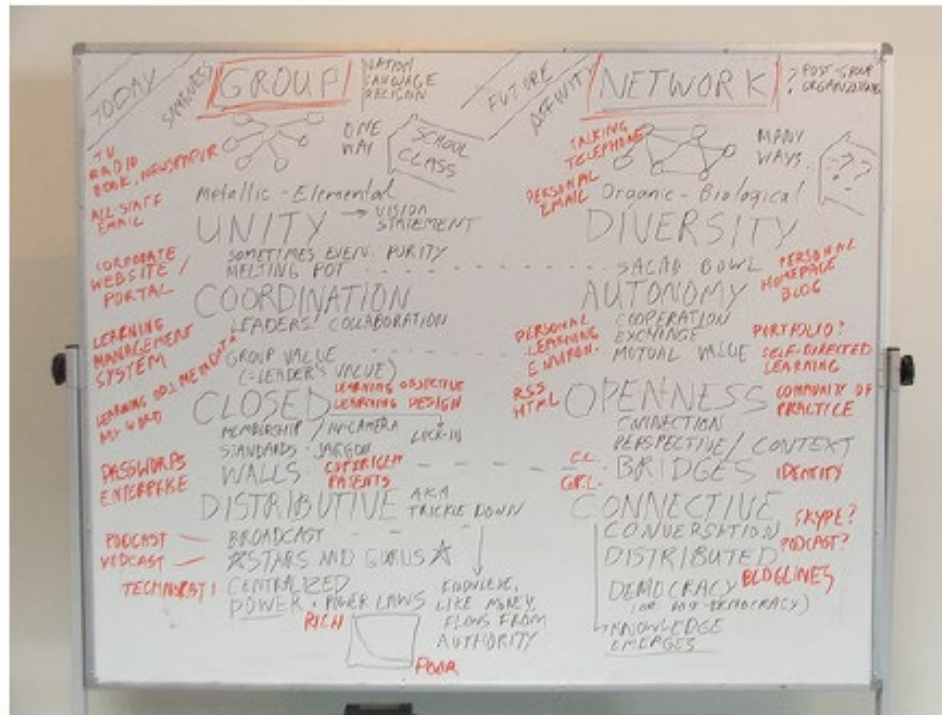 TODAY
GROUP
NATION
LANGUAGE
RELIGION
TV
RADIO
BOOK, NEWSPAPER
ONE
WAY
SCHOOL
CLASS
ALL-STAFF
EMAIL
Metallic - Elemental
UNITY → VISION
STATEMENT
SOMETIMES EVEN. PURITY
MELTING POT
CORPORATE
WEBSITE /
PORTAL
COORDINATION
LEADERS' COLLABORATION
LEARNING
MANAGEMENT
SYSTEM
GROUP VALUE
(=LEADER'S VALUE)
LEARNING OBJ. METADATA
MS WORD
CLOSED
LEARNING OBJECTIVE
LEARNING DESIGN
MEMBERSHIP / IN-CAMERA
LOCK-IN
STANDARDS - JARGON
WALLS
COPYRIGHT
PATENTS
PASSWORDS
ENTERPRISE
DISTRIBUTIVE AKA
TRICKLE DOWN
PODCAST
VODCAST
BROADCAST
STARS AND GURUS
TECHNORATI
CENTRALIZED
POWER • POWER LAWS
RICH
POOR
KNOWLEDGE,
LIKE MONEY,
FLOWS FROM
AUTHORITY
FUTURE
AFFINITY
NETWORK
? POST-GROUP
ORGANIZATIONS
TALKING
TELEPHONE
MANY
WAYS..
-??-
PERSONAL
EMAIL
Organic - Biological
DIVERSITY
SALAD BOWL
PERSONAL
HOMEPAGE
BLOG
AUTONOMY
COOPERATION
EXCHANGE
MUTUAL VALUE
PERSONAL
LEARNING
ENVIRON.
PORTFOLIO?
SELF-DIRECTED
LEARNING
RSS
HTML
OPEN-NESS
COMMUNITY OF
PRACTICE
CONNECTION
PERSPECTIVE / CONTEXT
C.C.
G.P.L.
BRIDGES
IDENTITY
CONNECTIVE
CONVERSATION
SKYPE?
PODCAST?
DISTRIBUTED
DEMOCRACY
BLOGLINES
(OR POST-DEMOCRACY)
KNOWLEDGE
EMERGES